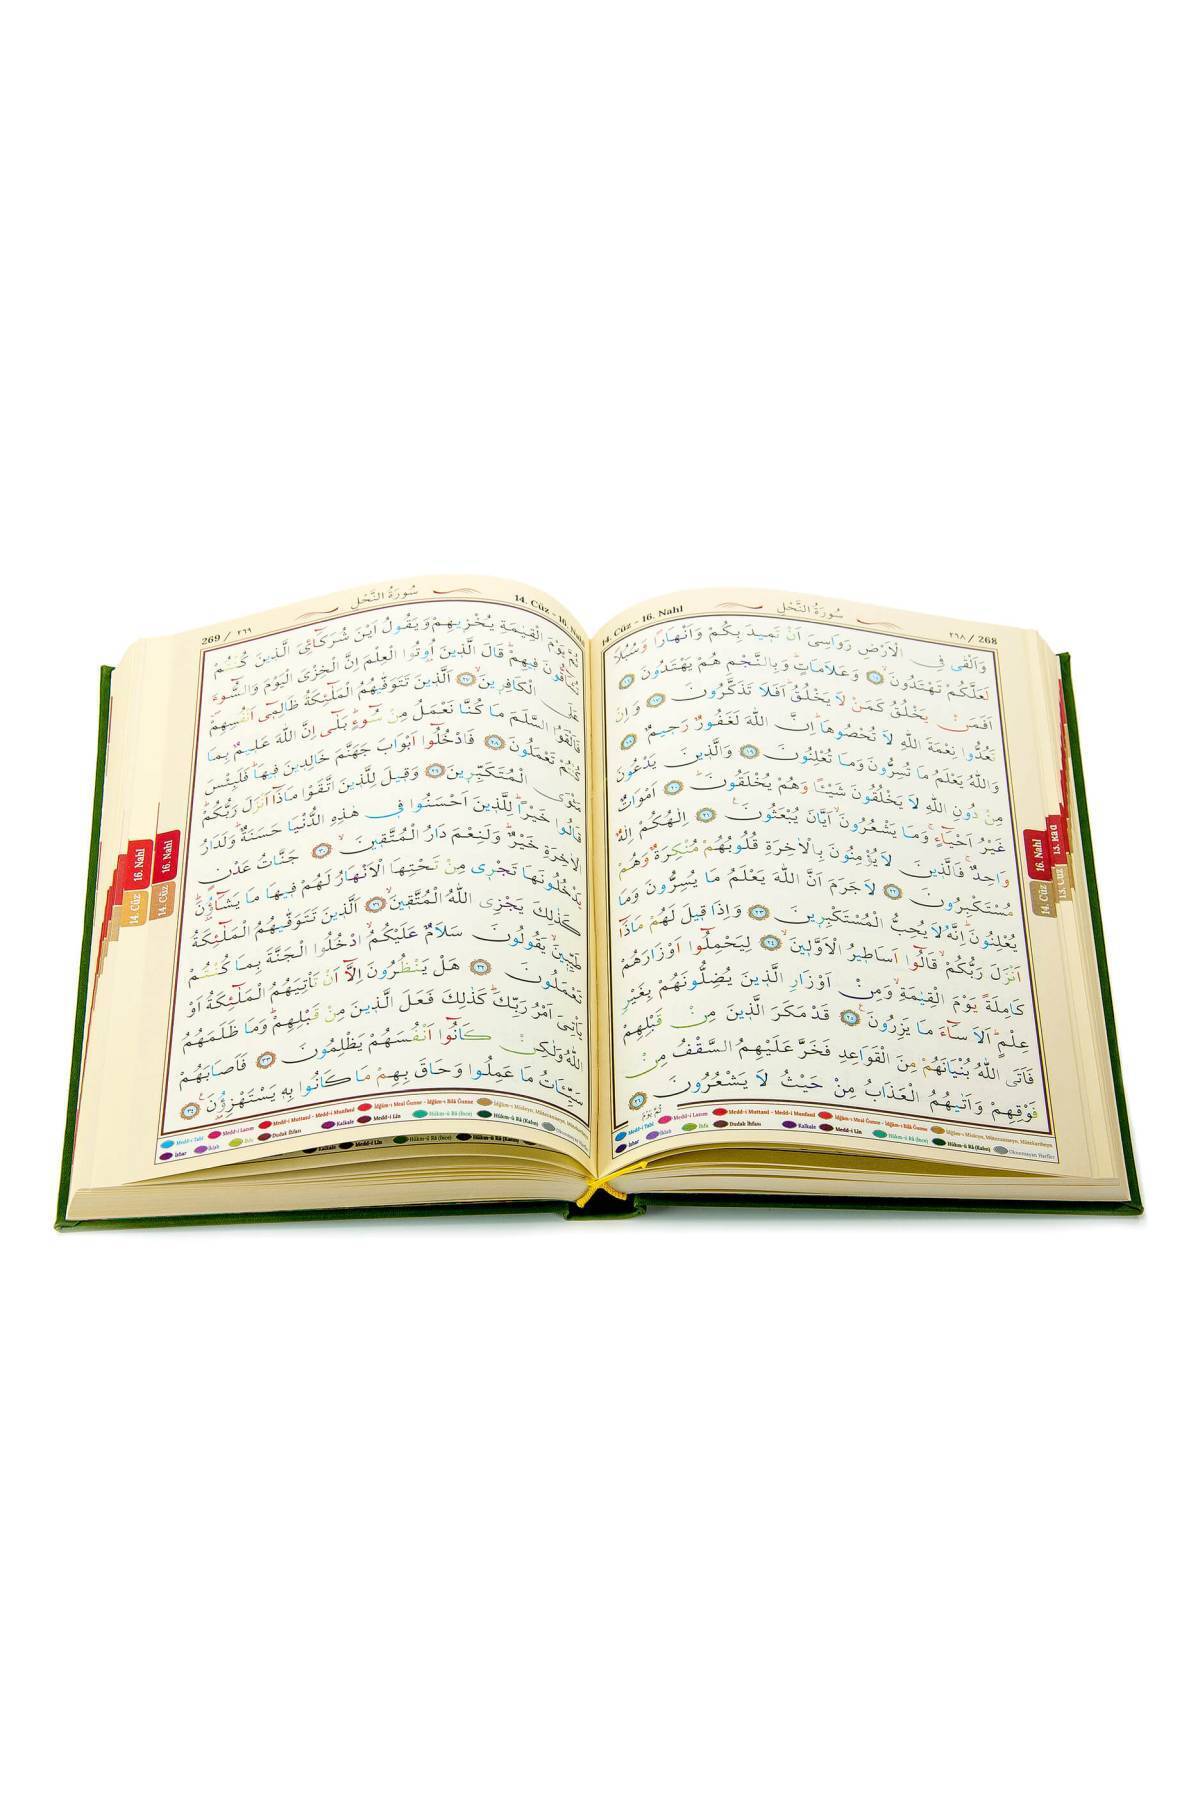 268 / ٢٦٨
سُورَةُ النَّحْلِ
14. Cüz - 16. Nahl
وَاَلْقٰى فِي الْاَرْضِ رَوَاسِيَ اَنْ تَم۪يدَ بِكُمْ وَاَنْهَارًا وَسُبُلًا
لَعَلَّكُمْ تَهْتَدُونَۙ ﴿١٥﴾ وَعَلَامَاتٍۜ وَبِالنَّجْمِ هُمْ يَهْتَدُونَ ﴿١٦﴾
اَفَمَنْ يَخْلُقُ كَمَنْ لَا يَخْلُقُۜ اَفَلَا تَذَكَّرُونَ ﴿١٧﴾ وَاِنْ
تَعُدُّوا نِعْمَةَ اللّٰهِ لَا تُحْصُوهَاۜ اِنَّ اللّٰهَ لَغَفُورٌ رَح۪يمٌ ﴿١٨﴾
وَاللّٰهُ يَعْلَمُ مَا تُسِرُّونَ وَمَا تُعْلِنُونَ ﴿١٩﴾ وَالَّذ۪ينَ يَدْعُونَ
مِنْ دُونِ اللّٰهِ لَا يَخْلُقُونَ شَيْـًٔا وَهُمْ يُخْلَقُونَۜ ﴿٢٠﴾ اَمْوَاتٌ
غَيْرُ اَحْيَٓاءٍۚ وَمَا يَشْعُرُونَۙ اَيَّانَ يُبْعَثُونَ۟ ﴿٢١﴾ اِلٰهُكُمْ اِلٰهٌ
وَاحِدٌۚ فَالَّذ۪ينَ لَا يُؤْمِنُونَ بِالْاٰخِرَةِ قُلُوبُهُمْ مُنْكِرَةٌ وَهُمْ
مُسْتَكْبِرُونَ ﴿٢٢﴾ لَا جَرَمَ اَنَّ اللّٰهَ يَعْلَمُ مَا يُسِرُّونَ وَمَا
يُعْلِنُونَۜ اِنَّهُ لَا يُحِبُّ الْمُسْتَكْبِر۪ينَ ﴿٢٣﴾ وَاِذَا ق۪يلَ لَهُمْ مَاذَٓا
اَنْزَلَ رَبُّكُمْۙ قَالُٓوا اَسَاط۪يرُ الْاَوَّل۪ينَۙ ﴿٢٤﴾ لِيَحْمِلُٓوا اَوْزَارَهُمْ
كَامِلَةً يَوْمَ الْقِيٰمَةِۙ وَمِنْ اَوْزَارِ الَّذ۪ينَ يُضِلُّونَهُمْ بِغَيْرِ
عِلْمٍۜ اَلَا سَٓاءَ مَا يَزِرُونَ۟ ﴿٢٥﴾ قَدْ مَكَرَ الَّذ۪ينَ مِنْ قَبْلِهِمْ
فَاَتَى اللّٰهُ بُنْيَانَهُمْ مِنَ الْقَوَاعِدِ فَخَرَّ عَلَيْهِمُ السَّقْفُ مِنْ
فَوْقِهِمْ وَاَتٰيهُمُ الْعَذَابُ مِنْ حَيْثُ لَا يَشْعُرُونَ ﴿٢٦﴾
ثُمَّ يَوْمَ
Medd-i Tabî Medd-i Lazım Medd-i Muttasıl - Medd-i Munfasıl İdğâm-ı Meal Ğunne - İdğâm-ı Bilâ Ğunne İdğâm-ı Misleyn, Mütecanseyn, Mütekaribeyn
İzhar İklab İhfa Dudak İhfası Kalkale Medd-i Lîn Hükm-ü Râ (İnce) Hükm-ü Râ (Kalın) Okunmayan Harfler
16. Nahl
14. Cüz
13. Cüz
14. Cüz - 16. Nahl
سُورَةُ النَّحْلِ
269 / ٢٦٩
يَوْمَ الْقِيٰمَةِ يُخْز۪يهِمْ وَيَقُولُ اَيْنَ شُرَكَٓائِيَ الَّذ۪ينَ كُنْتُمْ
ف۪يهِمْۜ قَالَ الَّذ۪ينَ اُو۫تُوا الْعِلْمَ اِنَّ الْخِزْيَ الْيَوْمَ وَالسُّٓوءَ
عَلَى الْكَافِر۪ينَۙ ﴿٢٧﴾ اَلَّذ۪ينَ تَتَوَفّٰيهُمُ الْمَلٰٓئِكَةُ ظَالِم۪ٓي اَنْفُسِهِمْۖ
فَاَلْقَوُا السَّلَمَ مَا كُنَّا نَعْمَلُ مِنْ سُٓوءٍۜ بَلٰٓى اِنَّ اللّٰهَ عَل۪يمٌ بِمَا
كُنْتُمْ تَعْمَلُونَ ﴿٢٨﴾ فَادْخُلُٓوا اَبْوَابَ جَهَنَّمَ خَالِد۪ينَ ف۪يهَاۜ فَلَبِئْسَ
مَثْوَى الْمُتَكَبِّر۪ينَ ﴿٢٩﴾ وَق۪يلَ لِلَّذ۪ينَ اتَّقَوْا مَاذَٓا اَنْزَلَ رَبُّكُمْۜ
قَالُوا خَيْرًاۜ لِلَّذ۪ينَ اَحْسَنُوا ف۪ي هٰذِهِ الدُّنْيَا حَسَنَةٌۜ وَلَدَارُ
الْاٰخِرَةِ خَيْرٌۜ وَلَنِعْمَ دَارُ الْمُتَّق۪ينَۙ ﴿٣٠﴾ جَنَّاتُ عَدْنٍ
يَدْخُلُونَهَا تَجْر۪ي مِنْ تَحْتِهَا الْاَنْهَارُ لَهُمْ ف۪يهَا مَا يَشَٓاؤُ۫نَۜ
كَذٰلِكَ يَجْزِي اللّٰهُ الْمُتَّق۪ينَۙ ﴿٣١﴾ اَلَّذ۪ينَ تَتَوَفّٰيهُمُ الْمَلٰٓئِكَةُ
طَيِّب۪ينَۙ يَقُولُونَ سَلَامٌ عَلَيْكُمُۙ ادْخُلُوا الْجَنَّةَ بِمَا كُنْتُمْ
تَعْمَلُونَ ﴿٣٢﴾ هَلْ يَنْظُرُونَ اِلَّٓا اَنْ تَأْتِيَهُمُ الْمَلٰٓئِكَةُ اَوْ
يَأْتِيَ اَمْرُ رَبِّكَۜ كَذٰلِكَ فَعَلَ الَّذ۪ينَ مِنْ قَبْلِهِمْۜ وَمَا ظَلَمَهُمُ
اللّٰهُ وَلٰكِنْ كَانُٓوا اَنْفُسَهُمْ يَظْلِمُونَ ﴿٣٣﴾ فَاَصَابَهُمْ
سَيِّـَٔاتُ مَا عَمِلُوا وَحَاقَ بِهِمْ مَا كَانُوا بِه۪ يَسْتَهْزِؤُ۫نَ۟ ﴿٣٤﴾
Medd-i Tabî Medd-i Lazım Medd-i Muttasıl - Medd-i Munfasıl İdğâm-ı Meal Ğunne - İdğâm-ı Bilâ Ğunne
İzhar İklab İhfa Dudak İhfası Kalkale Medd-i Lîn Hükm-ü Râ (İnce) Hükm-ü Râ (Kalın)
Kalkale Medd-i Lîn Hükm-ü Râ (İnce) Hükm-ü Râ (Kalın)
16. Nahl
14. Cüz
16. Nahl
14. Cüz